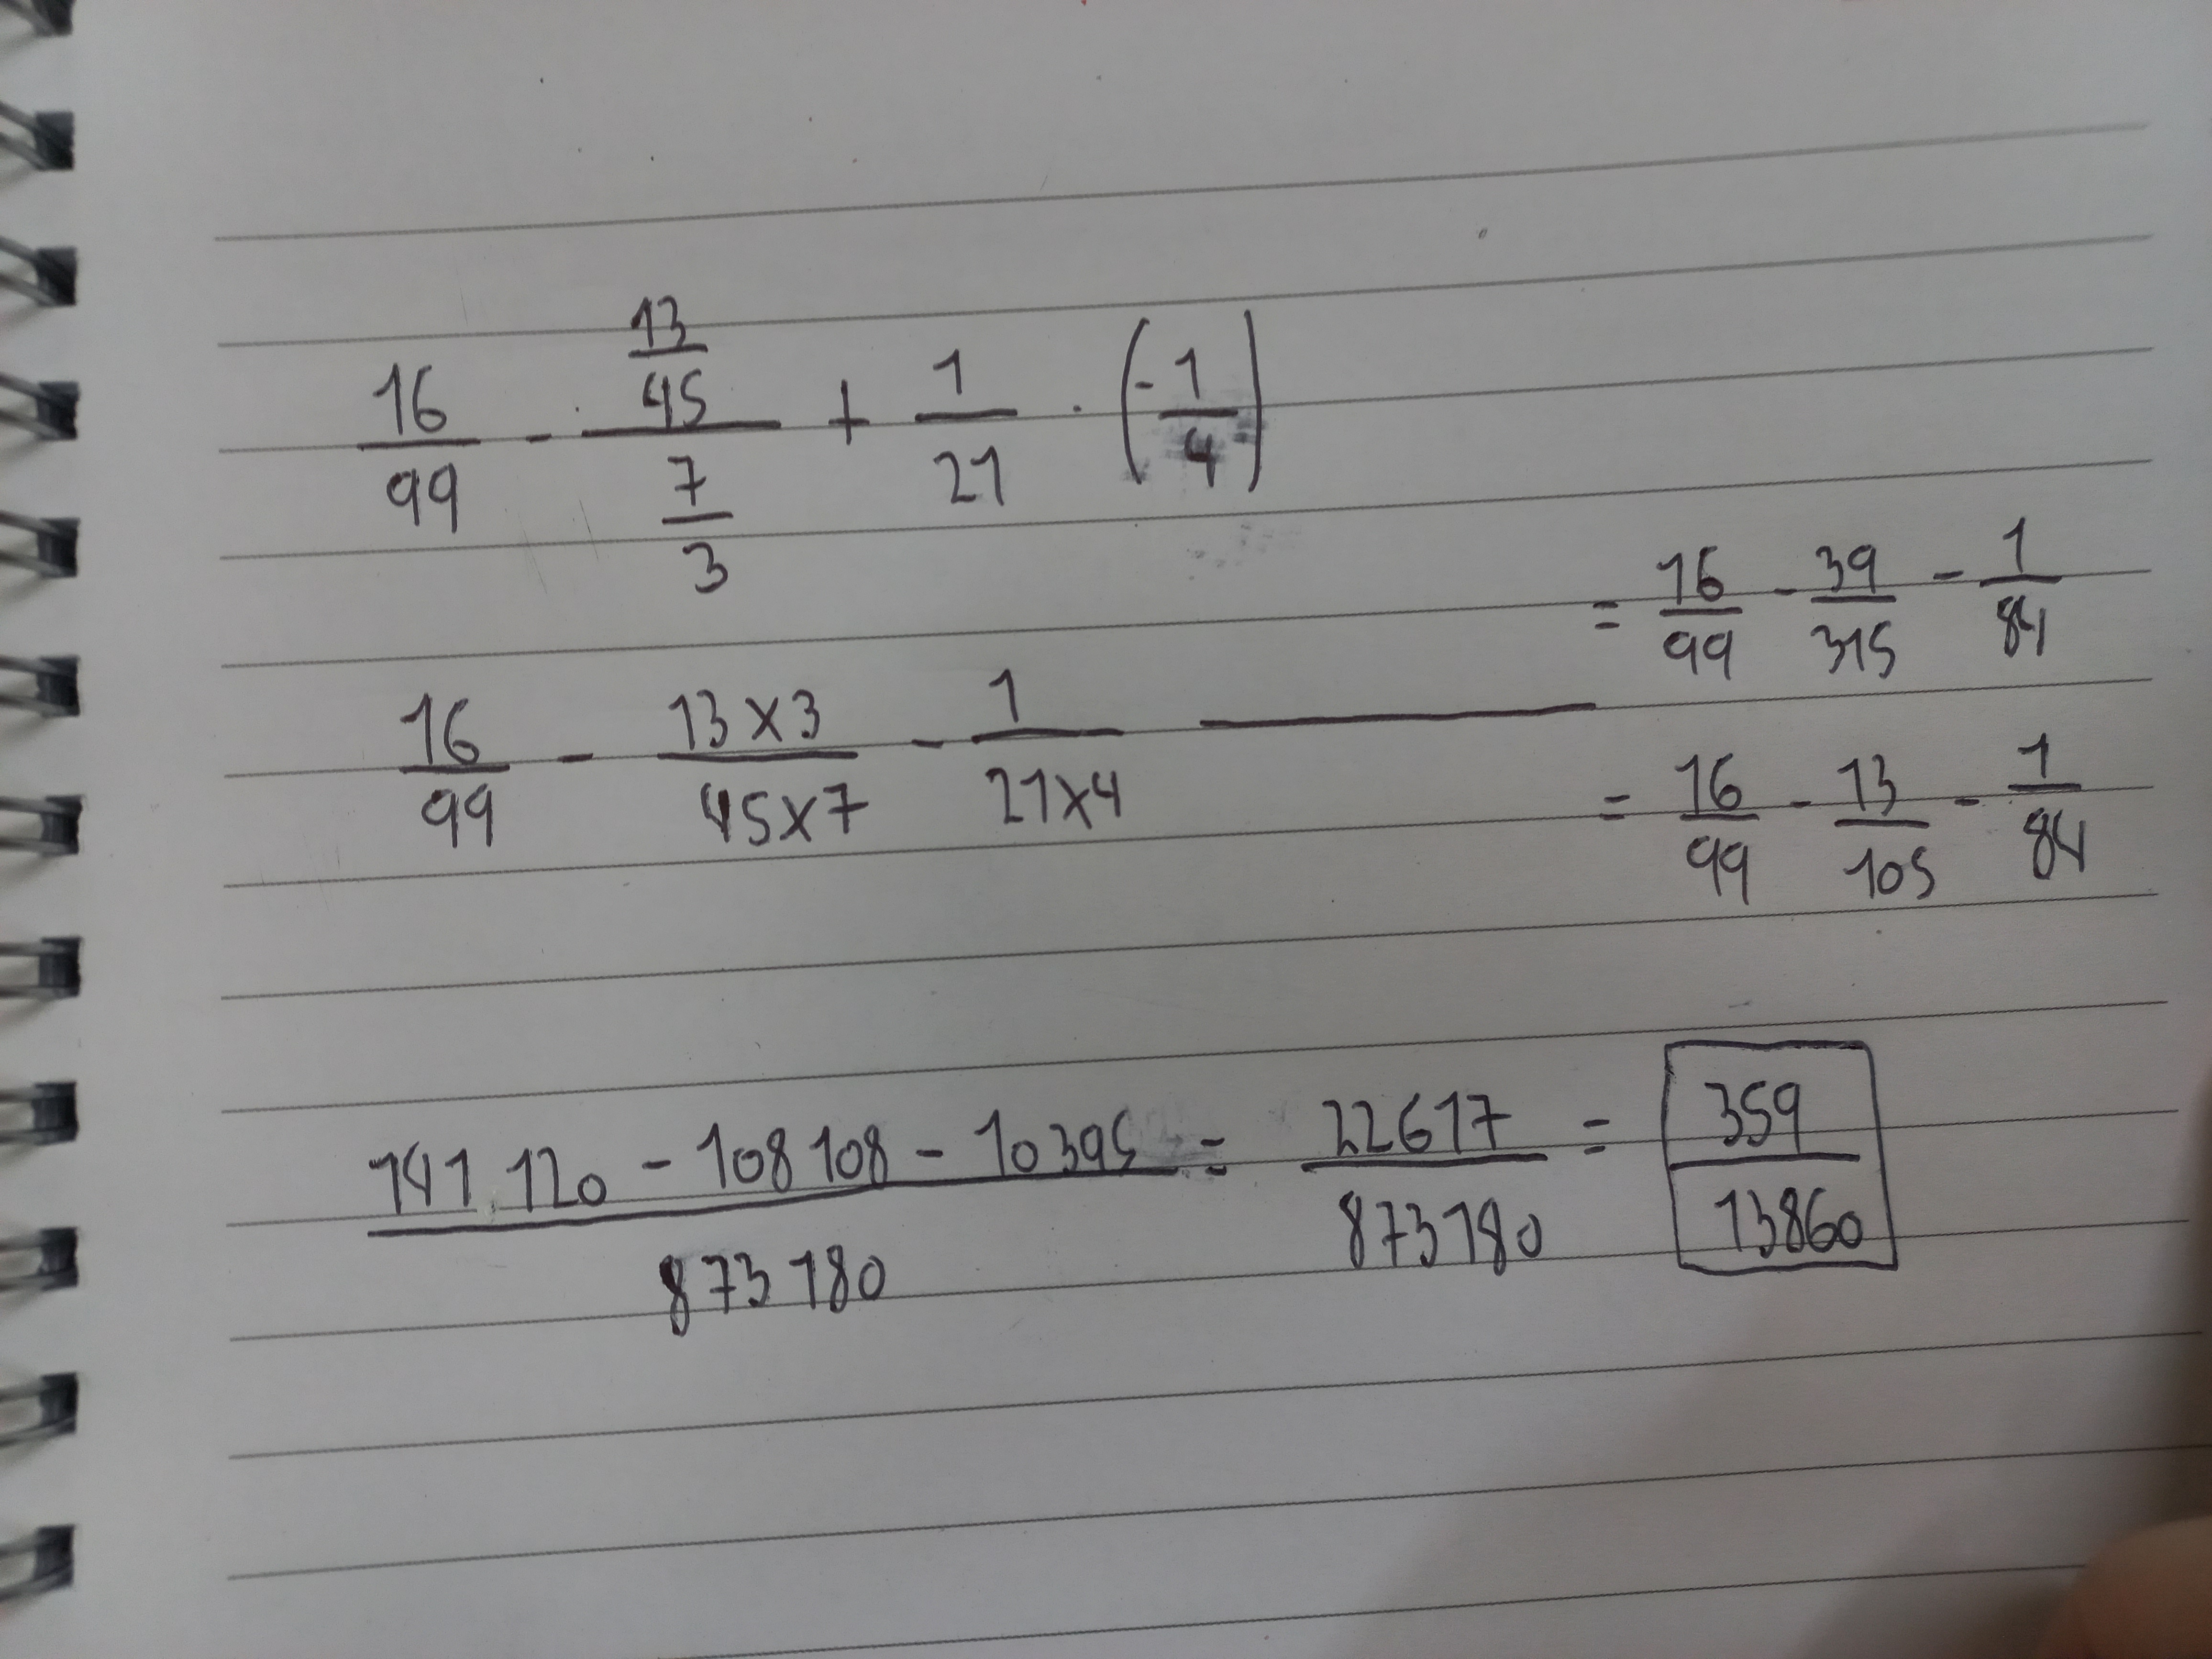 16/99 - (13/45)/(7/3) + 1/21 · (-1/4)
= 16/99 - 39/315 - 1/84
16/99 - 13x3/45x7 - 1/21x4
= 16/99 - 13/105 - 1/84
141120 - 108108 - 10395/873180 = 22617/873180 = 359/13860